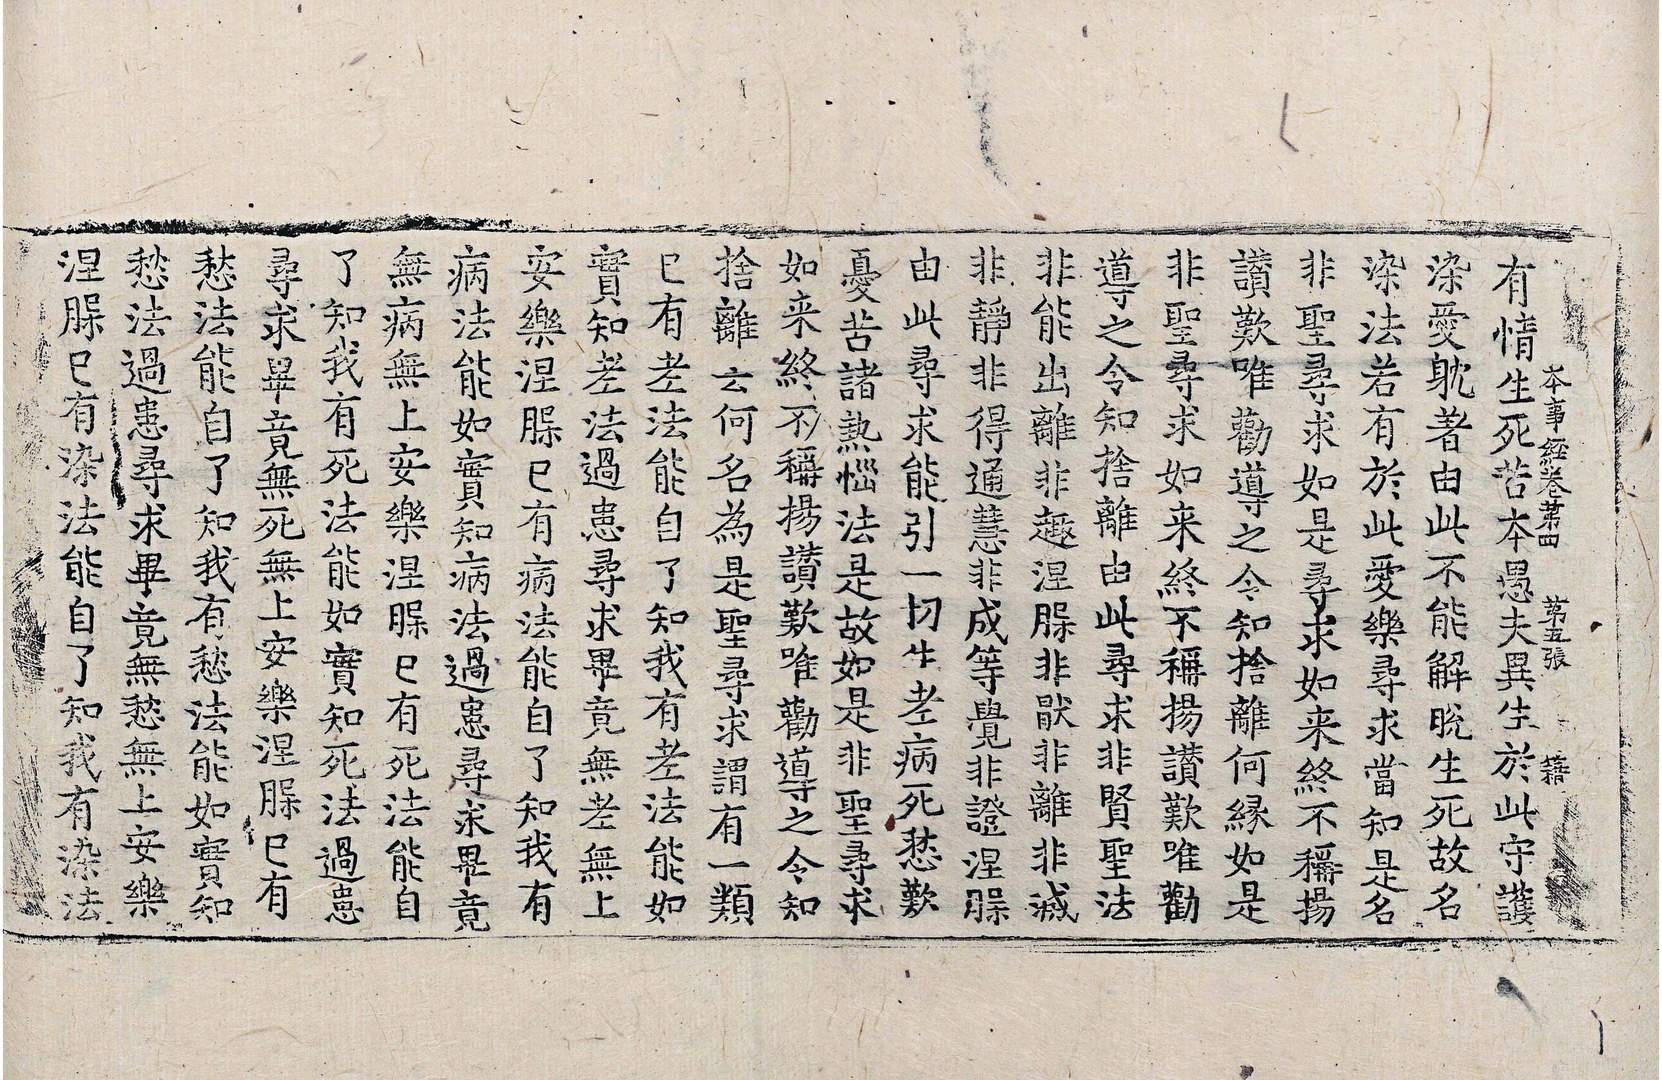 本事経卷第四 第五張 籍
有情生死苦本愚夫異生於此守護
染愛躭著由此不能解脫生死故名
染法若有於此愛樂尋求當知是名
非聖尋求如是尋求如来終不稱揚
讃歎唯勸導之令知捨離何縁如是
非聖尋求如来終不稱揚讃歎唯勸
導之令知捨離由此尋求非賢聖法
非能出離非趣涅脲非猒非離非滅
非靜非得通慧非成等覺非證涅脲
由此尋求能引一切生老病死愁歎
憂苦諸熱惱法是故如是非聖尋求
如来終不稱揚讃歎唯勸導之令知
捨離云何名為是聖尋求謂有一類
已有老法能自了知我有老法能如
實知老法過患尋求畢竟無老無上
安樂涅脲已有病法能自了知我有
病法能如實知病法過患尋求畢竟
無病無上安樂涅脲已有死法能自
了知我有死法能如實知死法過患
尋求畢竟無死無上安樂涅脲已有
愁法能自了知我有愁法能如實知
愁法過患尋求畢竟無愁無上安樂
涅脲已有染法能自了知我有染法